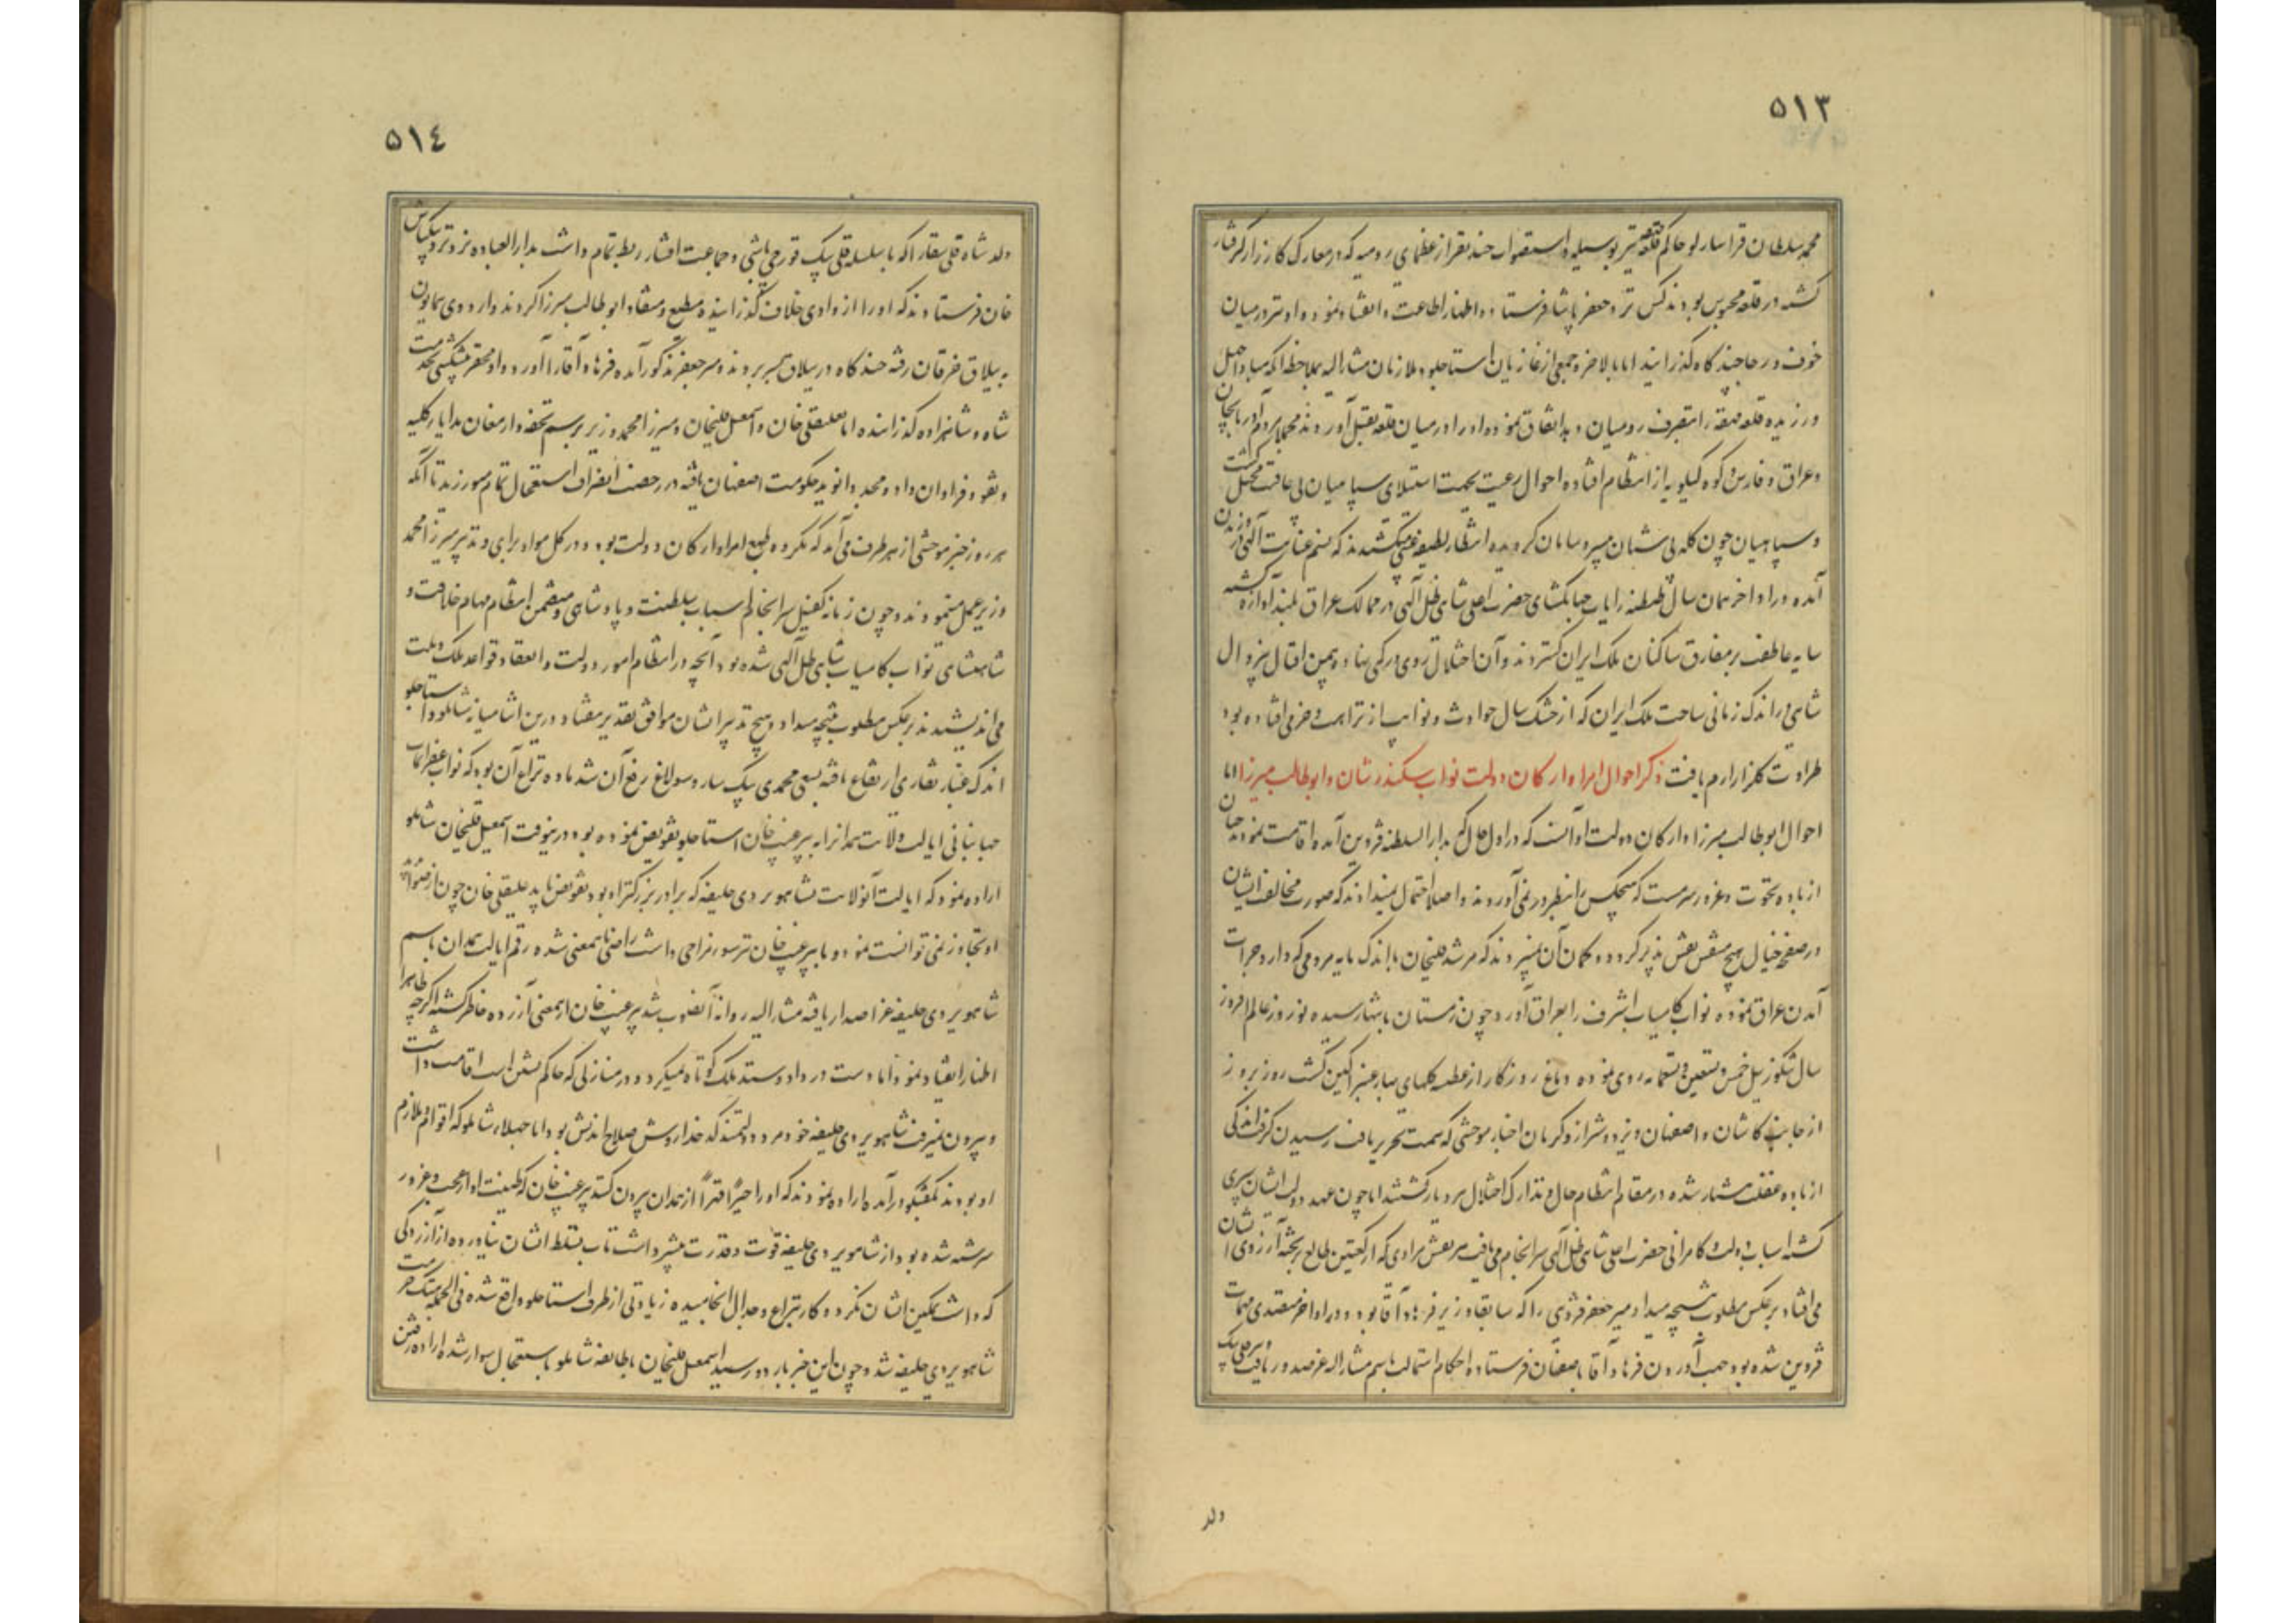 ٥١٣
محمد سلطان قراسارلو حاکم قلعه نیز بوسیله و استصواب چند نفر از عظمای رومیه که در معارک کارزار گرفتار
گشته در قلعه محبوس بودند کس نزد جعفر پاشا فرستاده اظهار اطاعت و انقیاد نموده او نیز در میان
خوف و رجا چند گاه گذرانید اما بالاخره جمعی از غازیان استاجلو و ملازمان مشار الیه بملاحظه آنکه مبادا
ورزیده قلعه را بتصرف رومیان دهد اتفاق نموده او را در میان قلعه بقتل آوردند مجملا
و عراق و فارس و کوه کیلویه از انتظام افتاده احوال رعیت بجهت استیلای سپاهیان بی عاقبت مختل گشت
و سپاهیان چون گله بی شبان بی سر و سامان گردیده انتظار لطیفه غیبی میکشیدند که نسیم عنایت الهی در وزیدن
آمده در اواخر همان سال طنطنه رایات جهانگشای حضرت اعلی شاهی ظل الهی در ممالک عراق بلند آوازه گشته
سایه عاطفت بر مفارق ساکنان ملک ایران گستردند و آن اختلال روی در کمی نهاد و بیمن اقبال بیزوال
شاهی در اندک زمانی ساحت ملک ایران که از خشک سال حوادث و نوایب از نزاهت و خرمی افتاده بود
طراوت گلزار ارم یافت ذکر احوال امرا و ارکان دولت نواب سکندر شان و ابوطالب میرزا اما
احوال ابوطالب میرزا و ارکان دولت او آنست که در اول حال که بدار السلطنه قزوین آمده اقامت نمودند چنان
از باده نخوت و غرور سرمست که هیچکس را بنظر در نمی‌آوردند و اصلا احتمال نمیدادند که صورت مخالفت ایشان
در صفحه خیال هیچ متنفس نقش پذیر گردد و گمان آن نمیبردند که مرشد قلیخان با اندک مایه مردمی که دارد جرات
آمدن عراق نموده نواب کامیاب اشرف را بعراق آورد چون زمستان بانتها رسیده نوروز عالم افروز
سال تنگوزئیل خمس و تسعین و تسعمائه روی نموده دماغ روزگار از عطسه گلهای بهار عنبر آگین گشت روز بروز
از جانب کاشان و اصفهان و یزد و شیراز و کرمان اخبار موحشی که سمت تحریر یافت رسیدن گرفت اندکی
از باده غفلت هشیار شده در مقام انتظام حال و تدارک اختلال هر دیار گشتند اما چون عهد دولت ایشان سپری
گشته اسباب دولت و کامرانی حضرت اعلی شاهی ظل الهی سرانجام می‌یافت هر نقش مرادی که از کعبتین طالع بر تخته آرزوی ایشان
می‌افتاد بر عکس مطلوب نتیجه میداد میر جعفر قزوینی را که سابقا وزیر فرهاد آقا بود و در اواخر متصدی مهمات
قزوین شده بود جهت آوردن فرهاد آقا باصفهان فرستاده احکام استمالت باسم مشار الیه عز صدور یافت
ولد
٥١٤
ولد شاه قلی یقار را که با سلسله قلی بیک قورچی باشی و جماعت افشار ربط تمام داشت بدار العباده یزد نزد بیکتاش
خان فرستادند که او را از وادی خلاف گذرانیده مطیع و منقاد ابوطالب میرزا کردند و اردوی همایون
به ییلاق خرقان رفته چند گاه در ییلاق بسر بردند و میر جعفر مذکور آمده فرهاد آقا را آورد و او محقر پیشکشی بخدمت
شاه و شاهزاده گذرانیده اما علیقلی خان و اسمعیل قلیخان و میرزا محمد وزیر برسم تحفه و ارمغان هدایا
و نقود فراوان داد و مجددا نوید حکومت اصفهان یافته در رخصت انصراف استعجال تمام میورزید تا آنکه
هر روز خبر موحشی از هر طرف می‌آمد که مکروه طبع امرا و ارکان دولت بود و در کل مواد برای و تدبیر میرزا محمد
وزیر عمل مینمودند و چون زمانه کفیل سرانجام اسباب سلطنت و پادشاهی و متضمن انتظام مهام خلافت و
شاهنشاهی نواب کامیاب شاهی ظل الهی شده بود آنچه در انتظام امور دولت و انعقاد قواعد ملک و ملت
می‌اندیشیدند بر عکس مطلوب نتیجه میداد و هیچ تدبیر ایشان موافق تقدیر نمیفتاد درین اثنا میانه شاملو و استاجلو
اندک غبار نقاری ارتفاع یافته بسعی محمدی بیک ساروسولاغ رفع آن شد ماده نزاع آن بود که نواب غفران مآب
جهانبانی ایالت ولایت همدان را به پیر غیب خان استاجلو تفویض نموده بود درینوقت اسمعیل قلیخان شاملو
اراده نمود که ایالت آنولایت بشاهویردی خلیفه که برادر بزرگتر او بود تفویض یابد علیقلی خان چون از
او تجاوز نمی‌توانست نمود و با پیر غیب خان نیز سوء مزاجی داشت راضی باینمعنی شده رقم ایالت همدان باسم
شاهویردی خلیفه عز اصدار یافته مشار الیه روانه آنصوب شد پیر غیب خان از اینمعنی آزرده خاطر گشته اگرچه ظاهرا
اظهار انقیاد نمود اما دست در داد و ستد ملک کوتاه نمیکرد و در منازلی که حاکم نشین است اقامت داشت
و بیرون نمیرفت شاهویردی خلیفه خود مرد دولتمند کدخدا روش صلاح اندیش بود اما جهلاء شاملو که اقوام و ملازم
او بودند بگفتگو درآمده اراده نمودند که او را جبرا قهرا از همدان بیرون کنند پیر غیب خان که طینت او از عجب و غرور
سرشته شده بود از شاهویردی خلیفه قوت و قدرت بیشتر داشت تاب تسلط ایشان نیاورده از آزردگی
که داشت تمکین ایشان نکرده کار بنزاع و جدال انجامیده زیادتی از طرف استاجلو واقع شده فی الجمله هتک حرمت
شاهویردی خلیفه شد و چون این خبر باردو رسید اسمعیل قلیخان با طایفه شاملو باستعجال سوار شده اراده رفتن